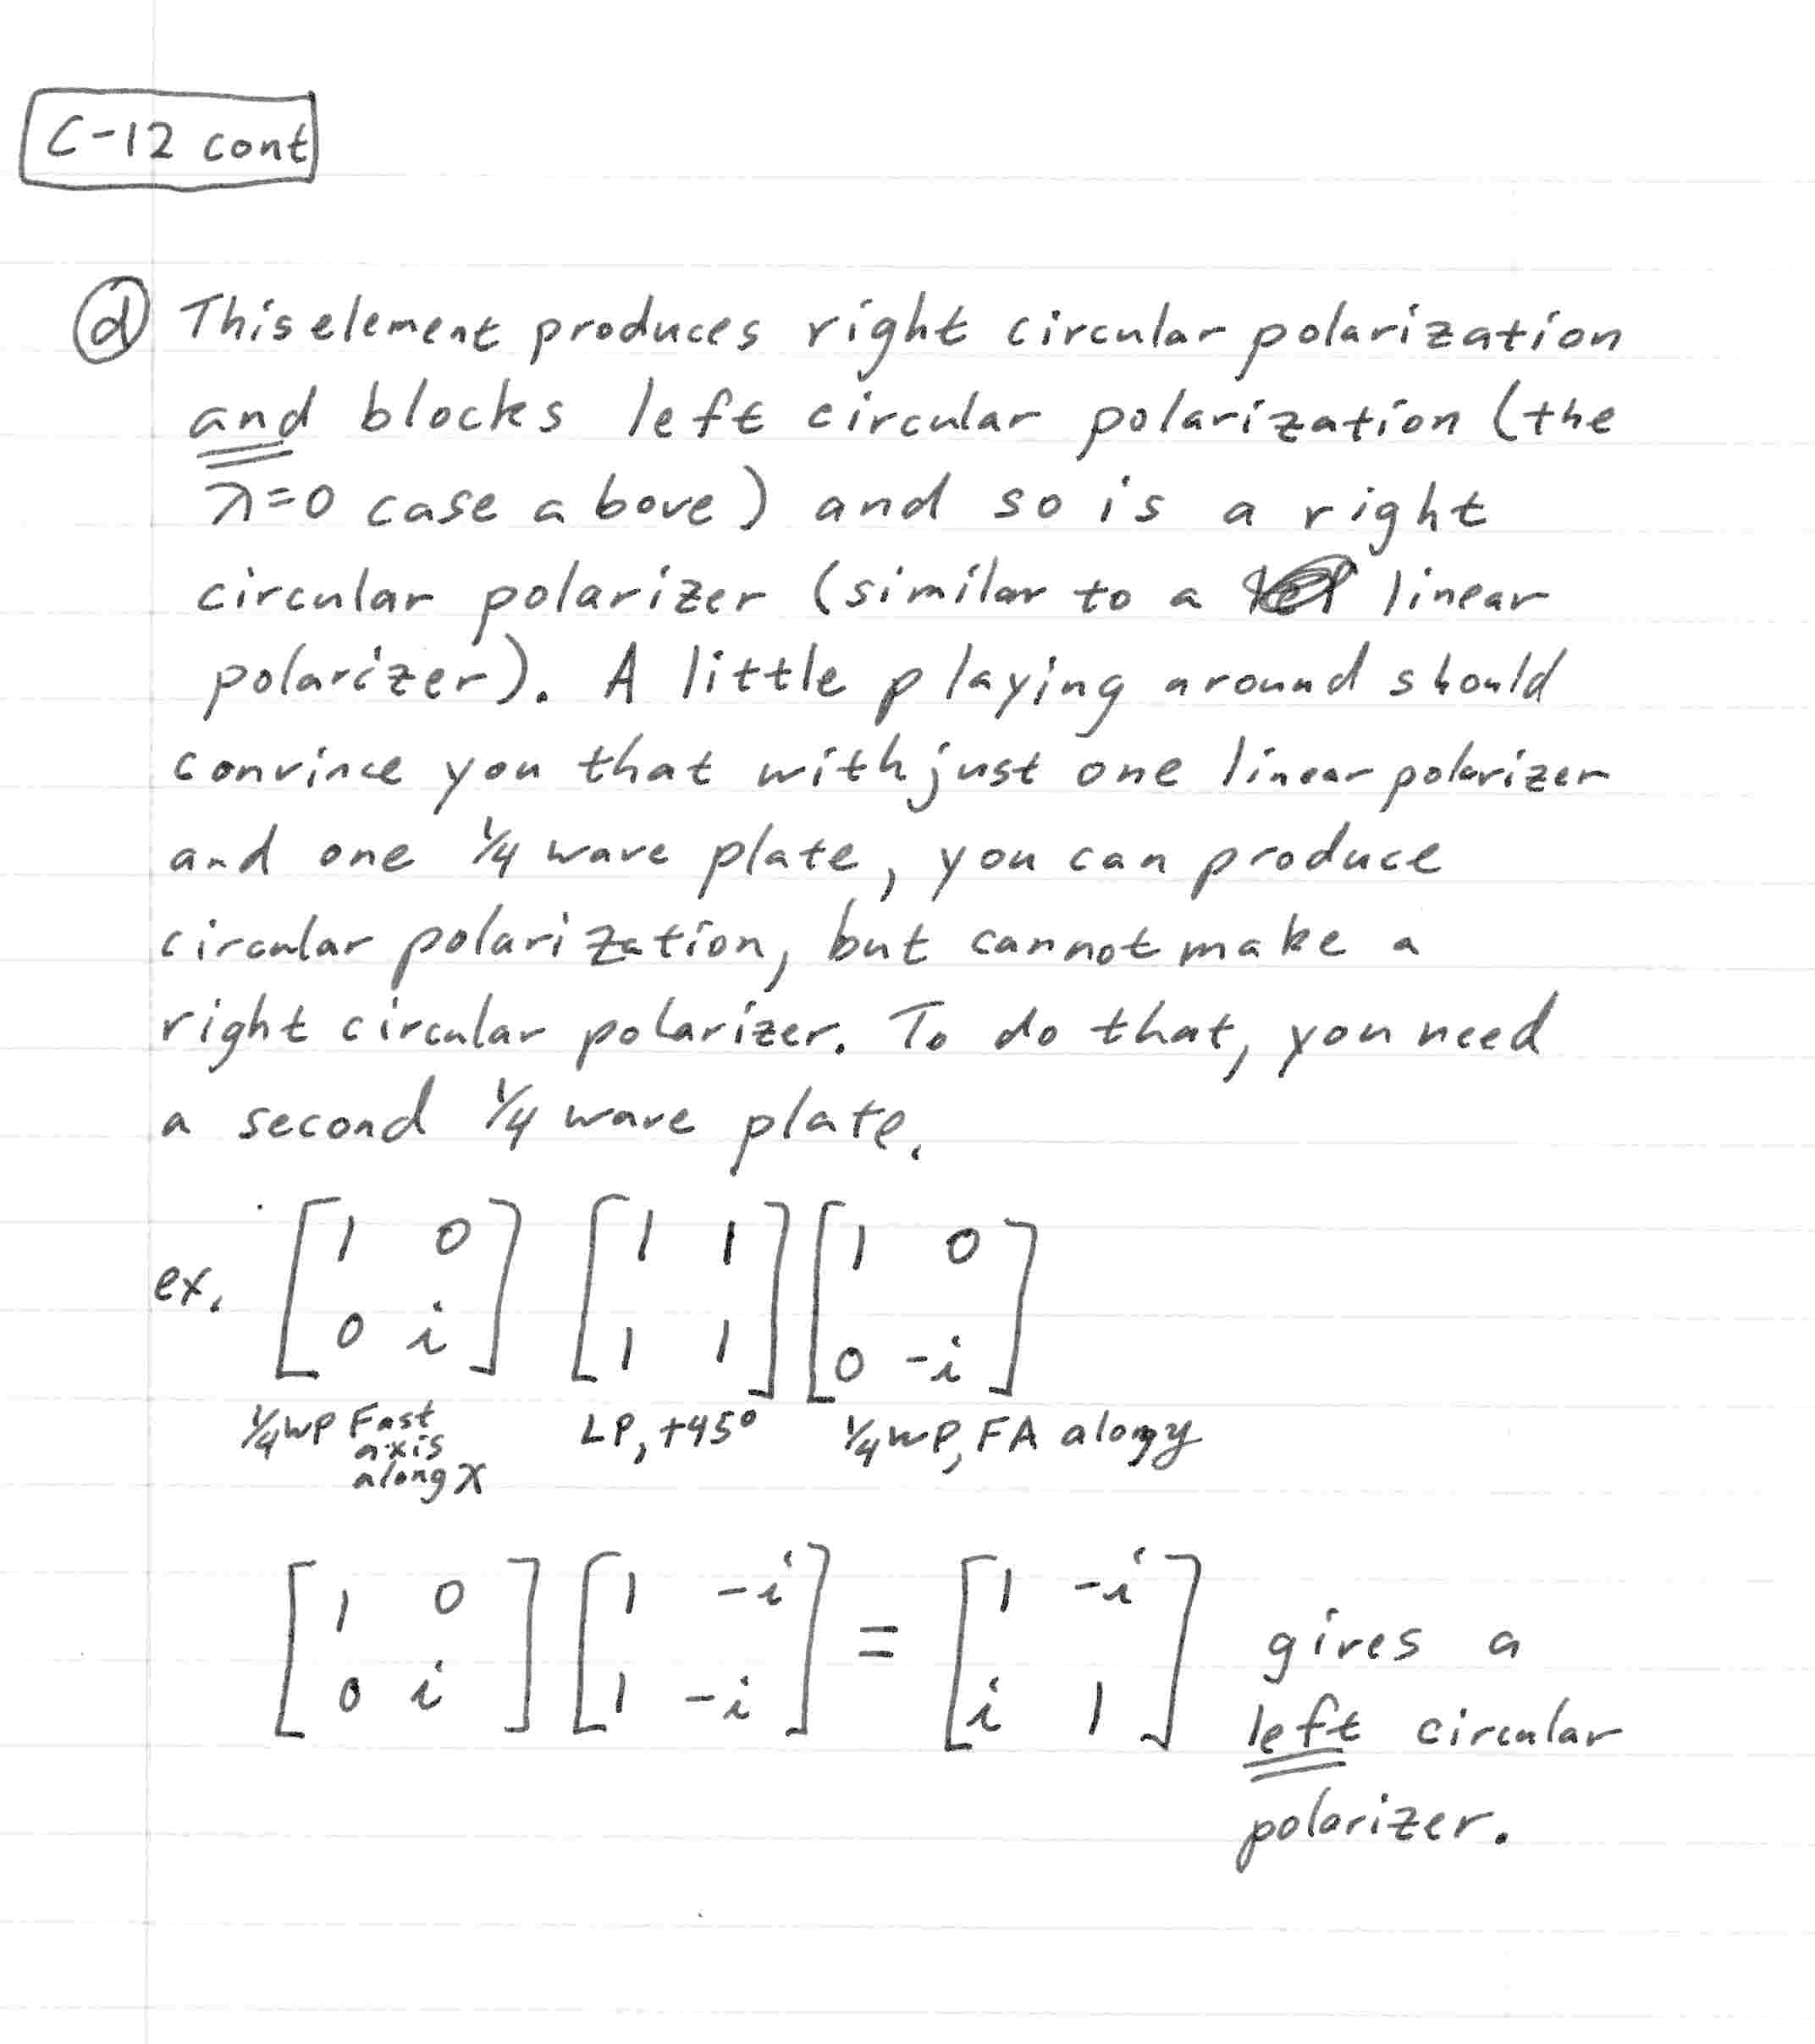 C-12 cont
(d) This element produces right circular polarization
and blocks left circular polarization (the
λ=0 case above) and so is a right
circular polarizer (similar to a linear
polarizer). A little playing around should
convince you that with just one linear polarizer
and one 1/4 wave plate, you can produce
circular polarization, but cannot make a
right circular polarizer. To do that, you need
a second 1/4 wave plate.
ex. [1 0; 0 i] [1 1; 1 1] [1 0; 0 -i]
1/4 WP Fast axis along x LP, +45° 1/4 WP, FA along y
[1 0; 0 i] [1 -i; 1 -i] = [1 -i; i 1] gives a
left circular
polarizer.